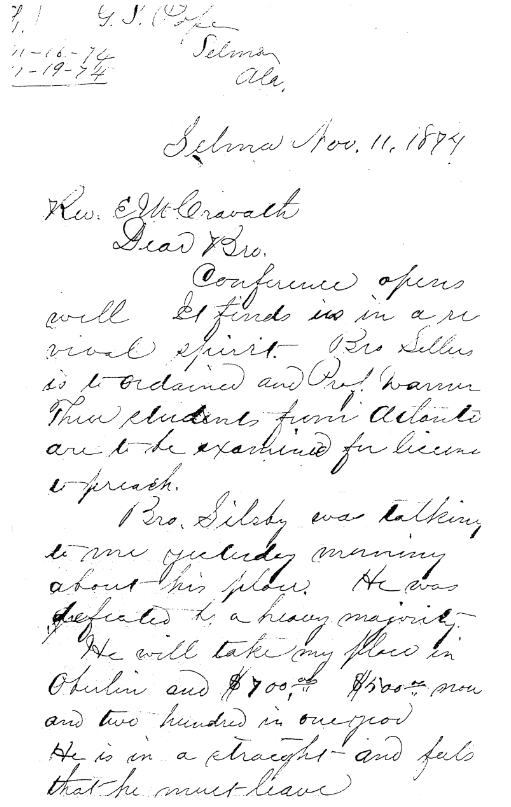 G. S. Pope
11-16-74 Selma
11-19-74 Ala.
Selma Nov. 11, 1874
Rev. E M Cravath
Dear Bro.
Conference opens
well It finds us in a re
vival spirit. Bro Sellers
is to ordained and Prof. Warner
Three students from Atlanta
are to be examined for license
to preach.
Bro. Silsby was talking
to me yesterday morning
about his place. He was
defeated by a heavy majority
He will take my place in
Oberlin and $700.00 $500.00 now
and two hundred in one year
He is in a straight and feels
that he must leave